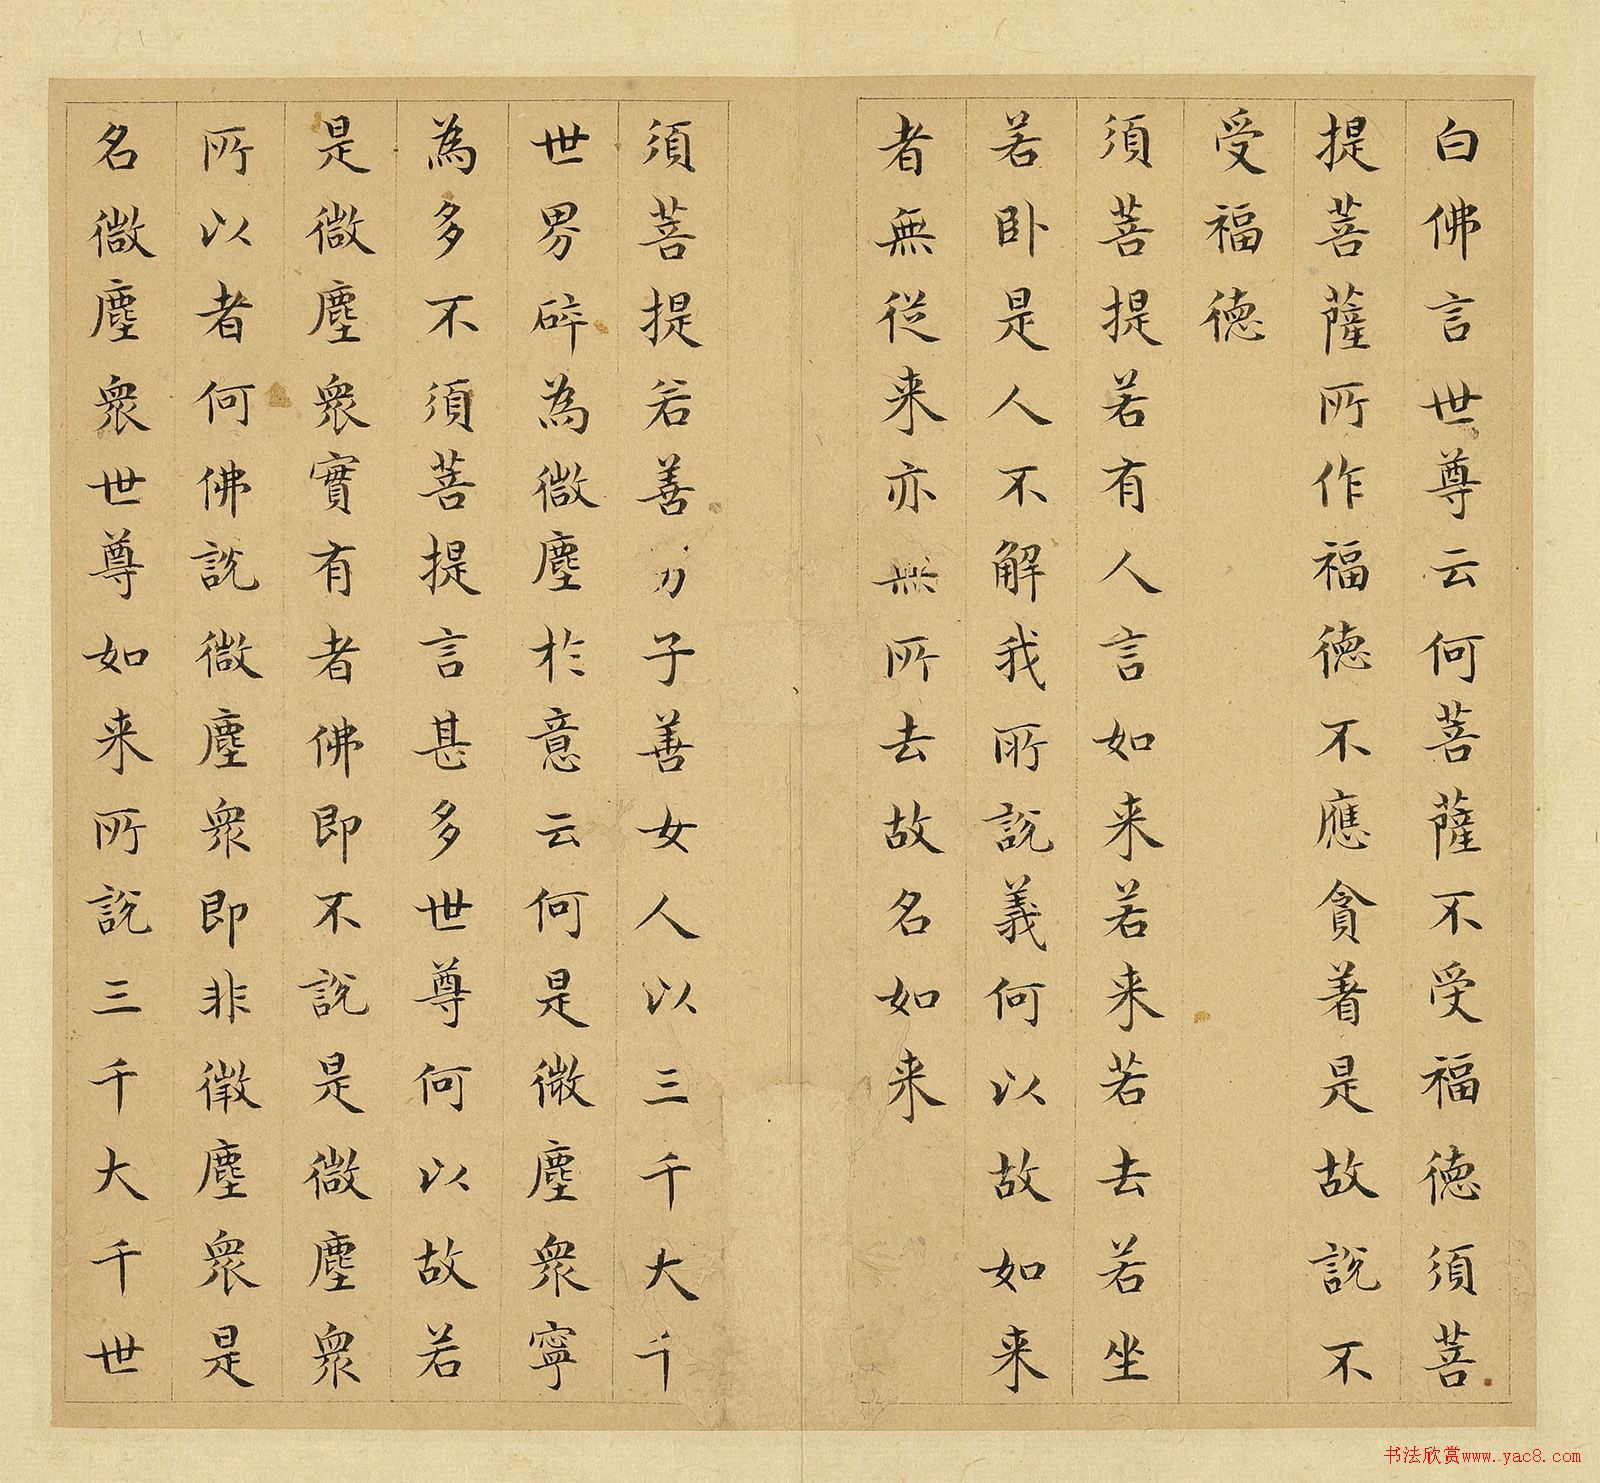 白佛言世尊云何菩薩不受福德須菩
提菩薩所作福德不應貪著是故說不
受福德
須菩提若有人言如来若来若去若坐
若卧是人不解我所說義何以故如来
者無從来亦無所去故名如来
須菩提若善男子善女人以三千大千
世界碎為微塵於意云何是微塵衆寧
為多不須菩提言甚多世尊何以故若
是微塵衆實有者佛即不說是微塵衆
所以者何佛說微塵衆即非微塵衆是
名微塵衆世尊如来所說三千大千世
书法欣赏www.yac8.com